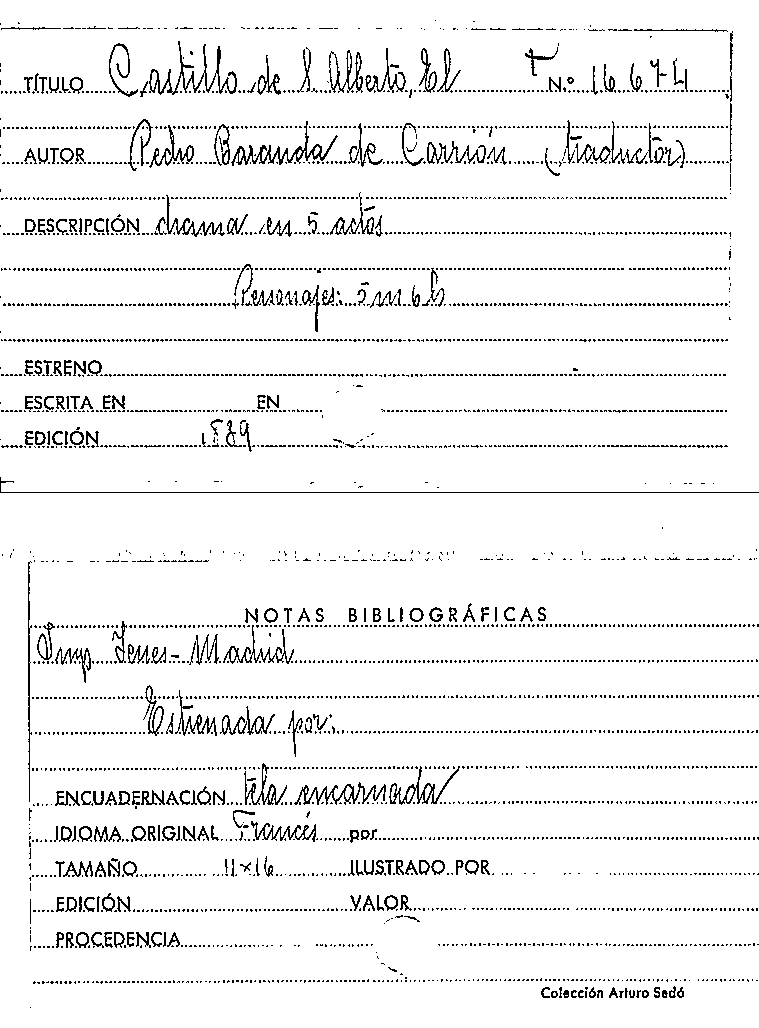 TÍTULO Castillo de S. Alberto, El T N.º 16674
AUTOR Pedro Baranda de Carrión (traductor)
DESCRIPCIÓN drama en 5 actos
Personajes: 5 m 6 h
ESTRENO
ESCRITA EN EN
EDICIÓN 1839
NOTAS BIBLIOGRÁFICAS
Imp Yenes - Madrid
Estrenada por:
ENCUADERNACIÓN tela encarnada
IDIOMA ORIGINAL Francés por
TAMAÑO 11x16 ILUSTRADO POR
EDICIÓN VALOR
PROCEDENCIA
Colección Arturo Sedó